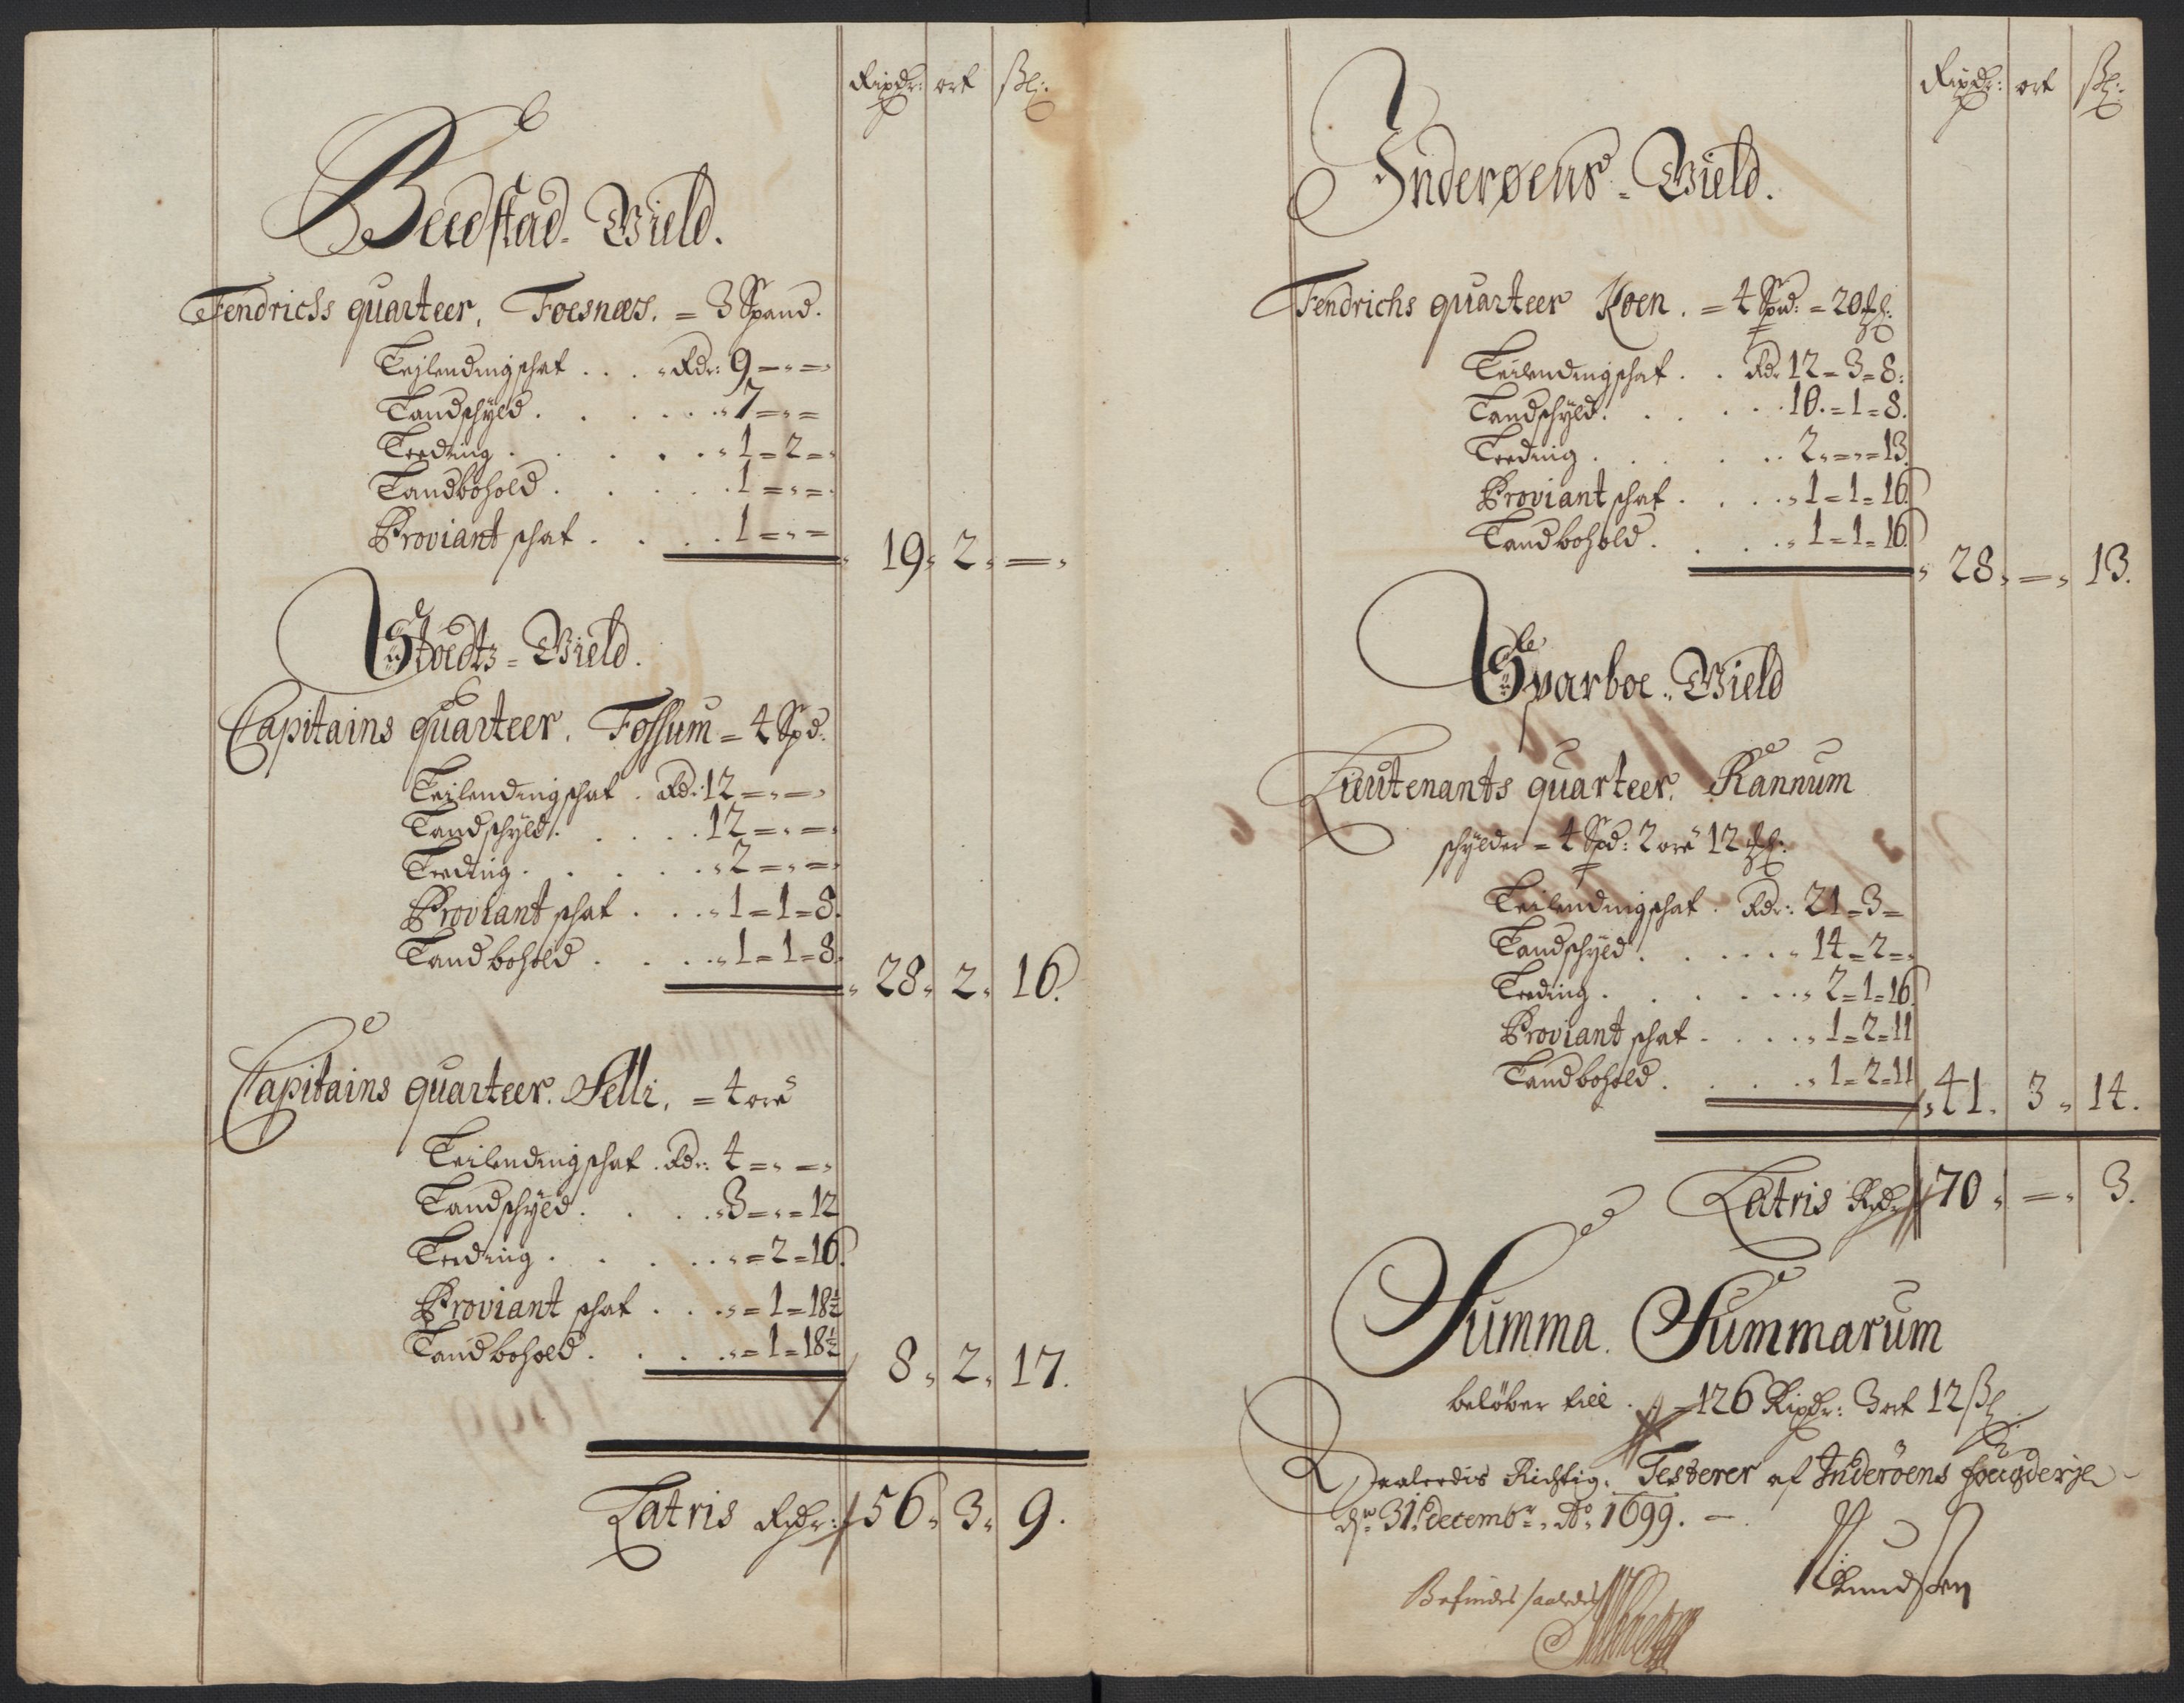 Rixdr: ort ßl:
Beedstad - Gield.
Fendrichs quarteer, Foesnæs. = 3 Spand.
Leylendingschat . . . Rdr: 9 = " =
Landschyld . . . . . . 7 = " =
Leeding . . . . . 1 = 2 =
Landbohold . . . . . 1 = " =
Proviant schat . . . . 1 = " =
19 " 2 " = "
Stoedtz = Gield.
Capitains quarteer. Fossum = 4 Spd:
Leylendingschat . Rd: 12 = " =
Landschyld . . . . 12 = " =
Leeding . . . . . 2 = " =
Proviant schat . . . 1 = 1 = 8.
Landbohold . . . . 1 = 1 = 8.
28 " 2 " 16.
Capitains quarteer. Selli, = 4 ore
Leilendingschat . Rdr: 4 = " =
Landschyld . . . . 3 = " = 12
Leeding . . . . . " = 2 = 16.
Proviant schat . . . " = 1 = 18½
Landbohold . . . . " = 1 = 18½
8 " 2 " 17.
Latris Rixdr: 56 " 3 " 9.
Rixdr: ort ßl:
Inderøens = Gield.
Fendrichs quarteer Koen. = 4 Spd: = 20 ɱl:
Leilendingschat . . Rdr 12 = 3 = 8:
Landschyld . . . . 10. = 1 = 8.
Leeding . . . . . 2 " = " = 13
Proviant schat . . . . 1 = 1 = 16
Landbohold . . . . 1 = 1 = 16
28 " = " 13.
Sparboe Gield
Lieutenants quarteer. Rannum
schylder = 4 Spd: 2 ore 12 ɱl:
Leilendingschat . Rdr: 21 = 3 =
Landschyld . . . . . 14 = 2 =
Leeding . . . . . 2 = 1 = 16
Proviant schat . . . . 1 = 2 = 11
Landbohold . . . . 1 = 2 = 11
41 " 3 " 14.
Latris Rixdr 70 " = " 3.
Summa Summarum
beløber till . = 126 Rixdr: 3 ort 12 ßl
Saaledis Richtig, Testerer af Inderøens fougderje
dn: 31. decembr: Ao: 1699.
Knudsen
Befindes saaledes